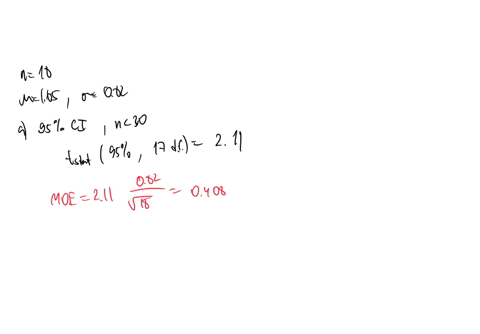 n=18
μ=1.65, σ=0.82
a) 95% CI, n<30
tstat (95%, 17 d.f.) = 2.11
MOE = 2.11 0.82/√18 = 0.408